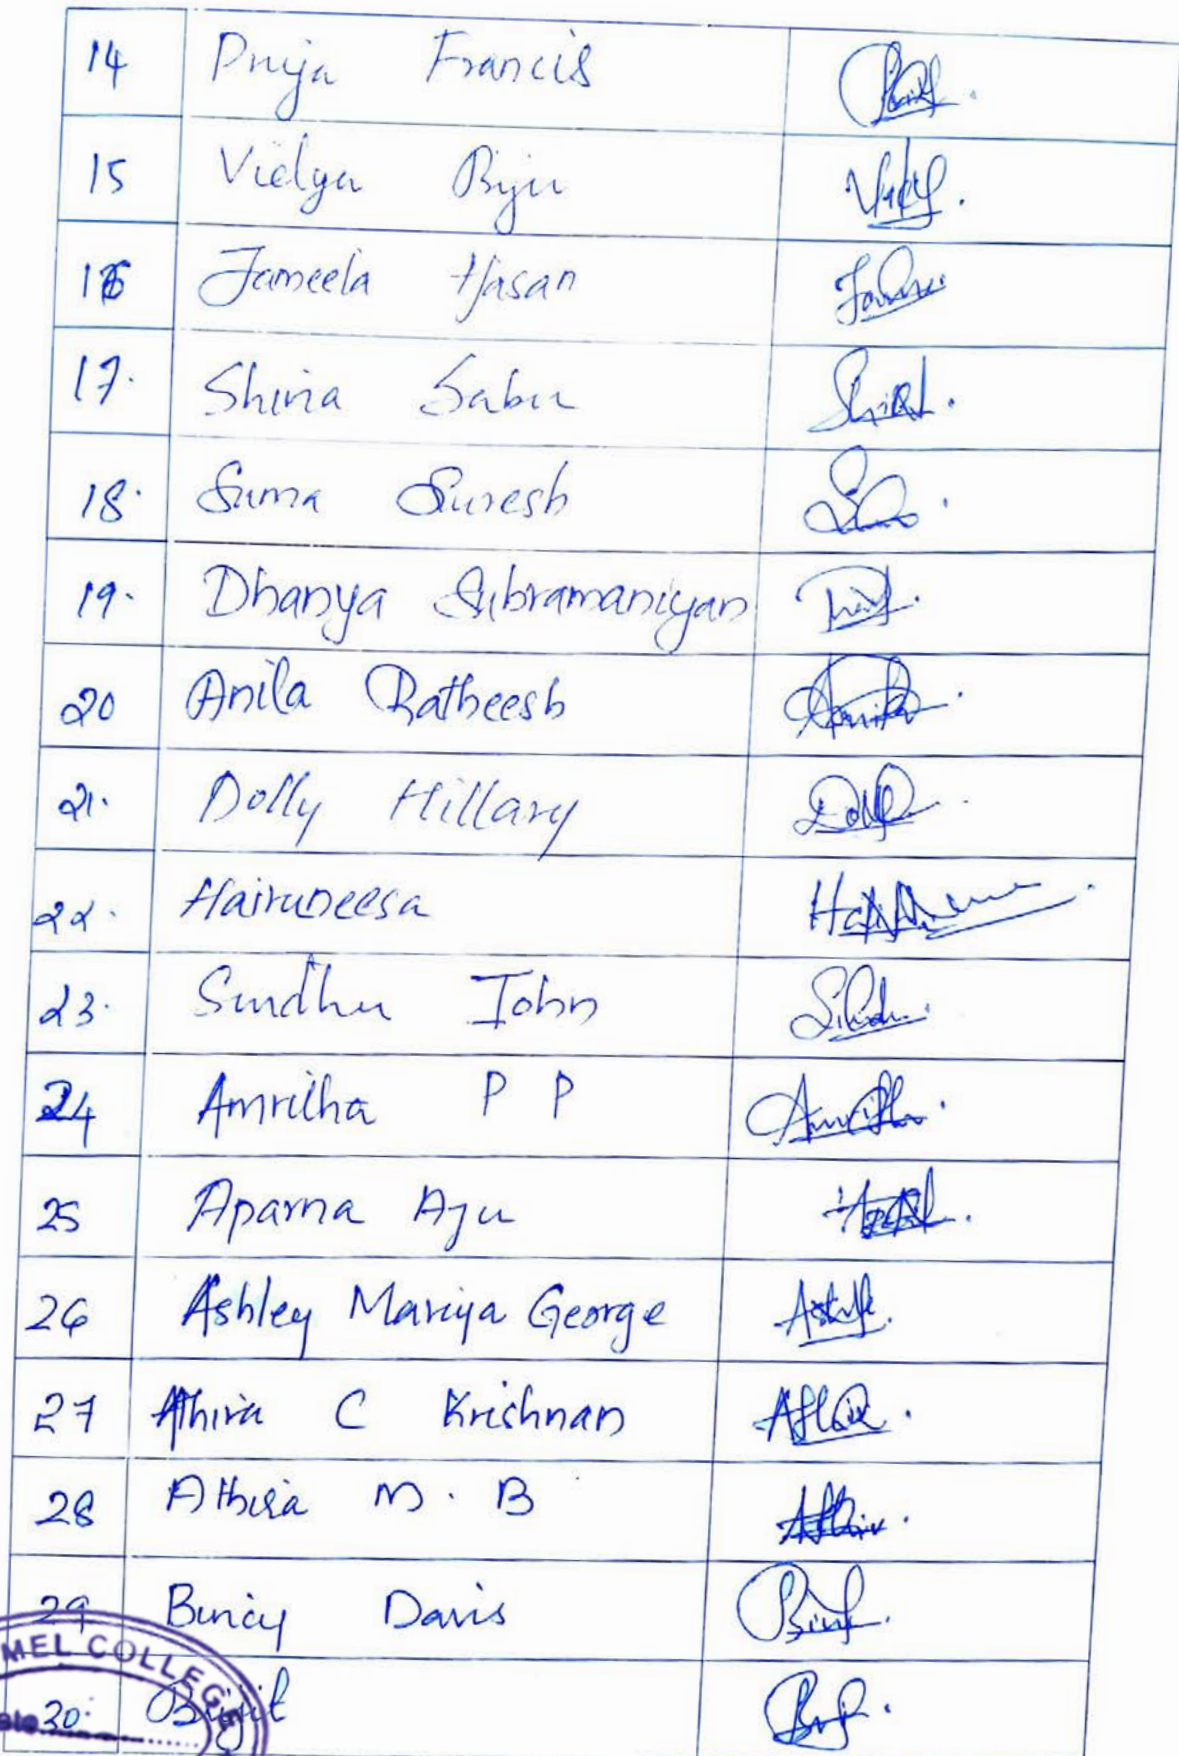 14 Priya Francis
15 Vidya Biju
16 Jameela Hasan
17. Shiria Sabu
18. Suma Suresh
19. Dhanya Subramaniyan
20 Anila Ratheesh
21. Dolly Hillary
22. Hairuneesa
23. Sindhu John
24 Amritha P P
25 Aparna Aju
26 Ashley Mariya George
27 Athira C Krishnan
28 Athira M. B
29 Bincy Davis
MEL COLLEGE
30. Brijit